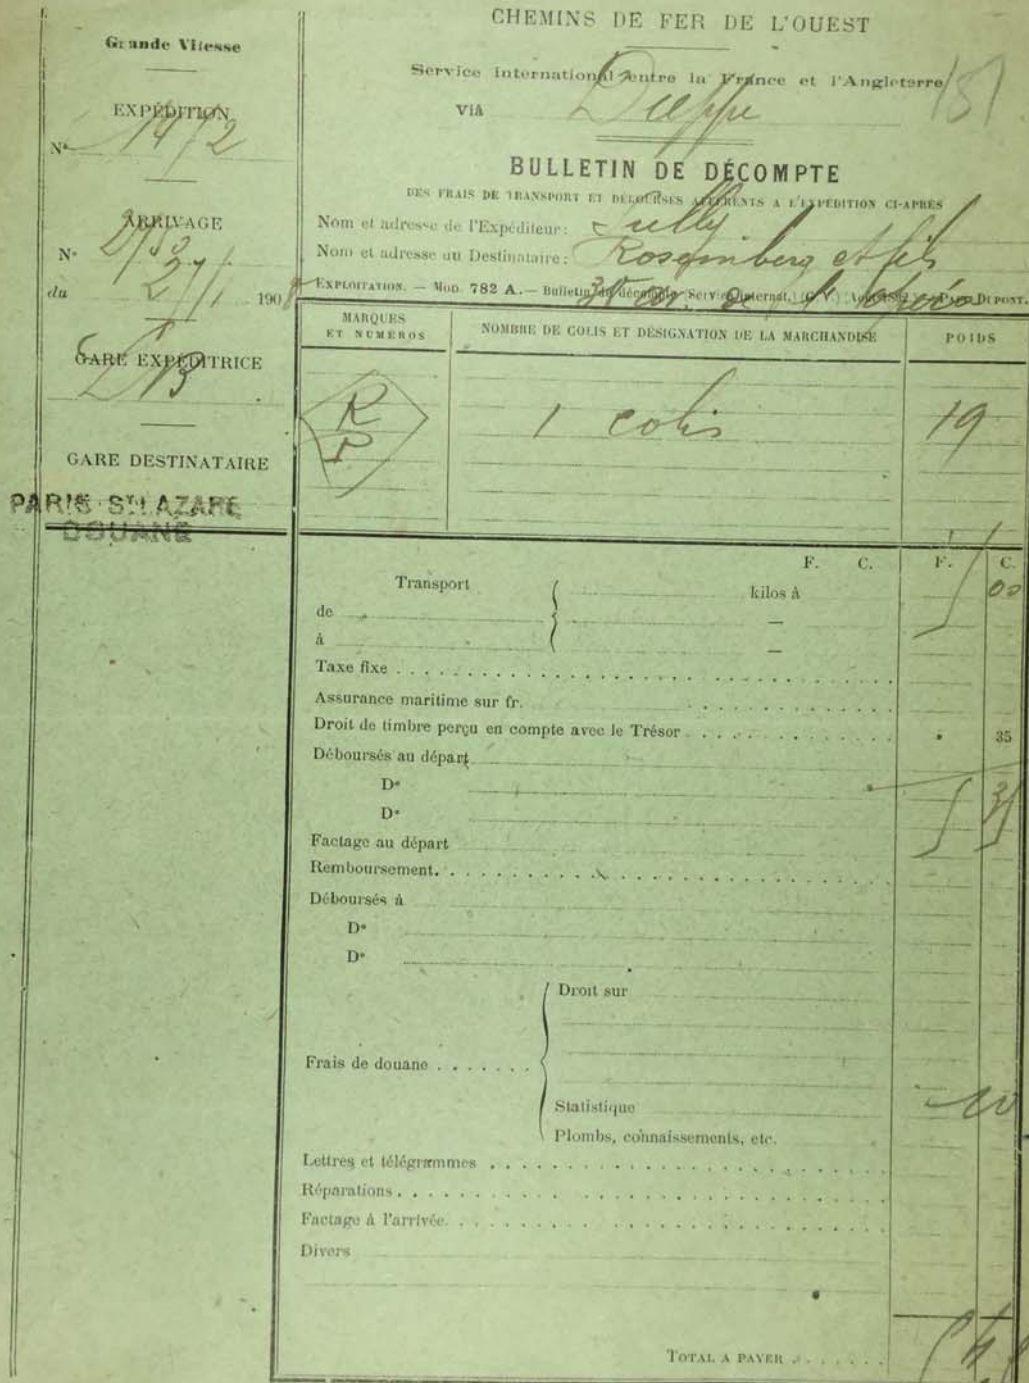 Grande Vitesse
EXPÉDITION
N° 1472
ARRIVAGE
N°
du 27/1 1908
GARE EXPÉDITRICE
LB
GARE DESTINATAIRE
PARIS ST LAZARE
DOUANE
CHEMINS DE FER DE L'OUEST
Service international entre la France et l'Angleterre
Viâ Dieppe
BULLETIN DE DÉCOMPTE
DES FRAIS DE TRANSPORT ET DÉBOURSÉS AFFÉRENTS A L'EXPÉDITION CI-APRÈS
Nom et adresse de l'Expéditeur:
Nom et adresse du Destinataire: Rosemberg et fils
EXPLOITATION. — MOD. 782 A. — Bulletin de décompte (Service internat.) (G. V.) PAUL DUPONT.
MARQUES ET NUMÉROS
NOMBRE DE COLIS ET DÉSIGNATION DE LA MARCHANDISE
POIDS
R
1 colis
19
F. C. F. C.
Transport kilos à 5 00
de —
à —
Taxe fixe
Assurance maritime sur fr.
Droit de timbre perçu en compte avec le Trésor 35
Déboursés au départ
D° 5 35
D°
Factage au départ
Remboursement.
Déboursés à
D°
D°
Droit sur
Frais de douane
Statistique 10
Plombs, connaissements, etc.
Lettres et télégrammes
Réparations
Factage à l'arrivée
Divers
TOTAL A PAYER